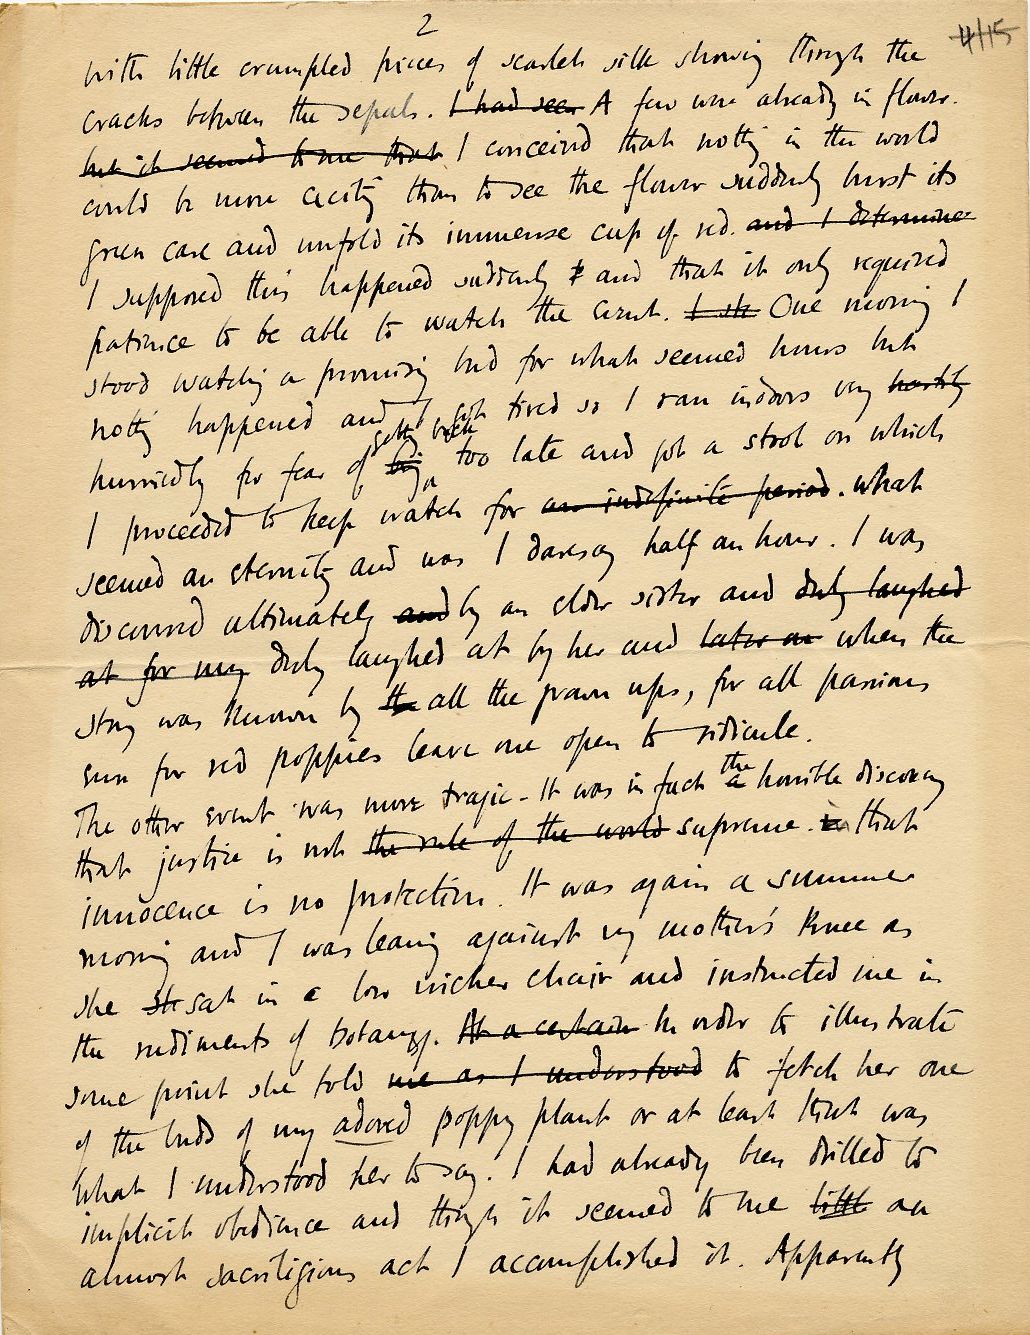 2
4/15
with little crumpled pieces of scarlet silk showing through the
cracks between the sepals. I had see A few were already in flower.
but it seemed to me that I conceived that nothing in the world
could be more exciting than to see the flower suddenly burst its
green case and unfold its immense cup of red. and I determine
I supposed this happened suddenly & and that it only required
patience to be able to watch the event. I sh One morning I
stood watching a promising bud for what seemed hours but
nothing happened and I got tired so I ran indoors very hastily
getting back
hurriedly for fear of being too late and got a stool on which
I proceeded to keep watch for an indefinite period. what
seemed an eternity and was I daresay half an hour. I was
discovered ultimately and by an elder sister and duly laughed
at for my duly laughed at by her and later on when the
story was known by th all the grown ups, for all passions
even for red poppies leave one open to ridicule.
the
The other event was more tragic - It was in fact a horrible discovery
that justice is not the rule of the world supreme. is that
innocence is no protection. It was again a summer
morning and I was leaning against my mother's knee as
she sh sat in a low wicker chair and instructed me in
the rudiments of botany. At a certain In order to illustrate
some point she told me as I understood to fetch her one
of the buds of my adored poppy plant or at least that was
what I understood her to say. I had already been drilled to
implicit obedience and though it seemed to me little an
almost sacrilegious act I accomplished it. Apparently